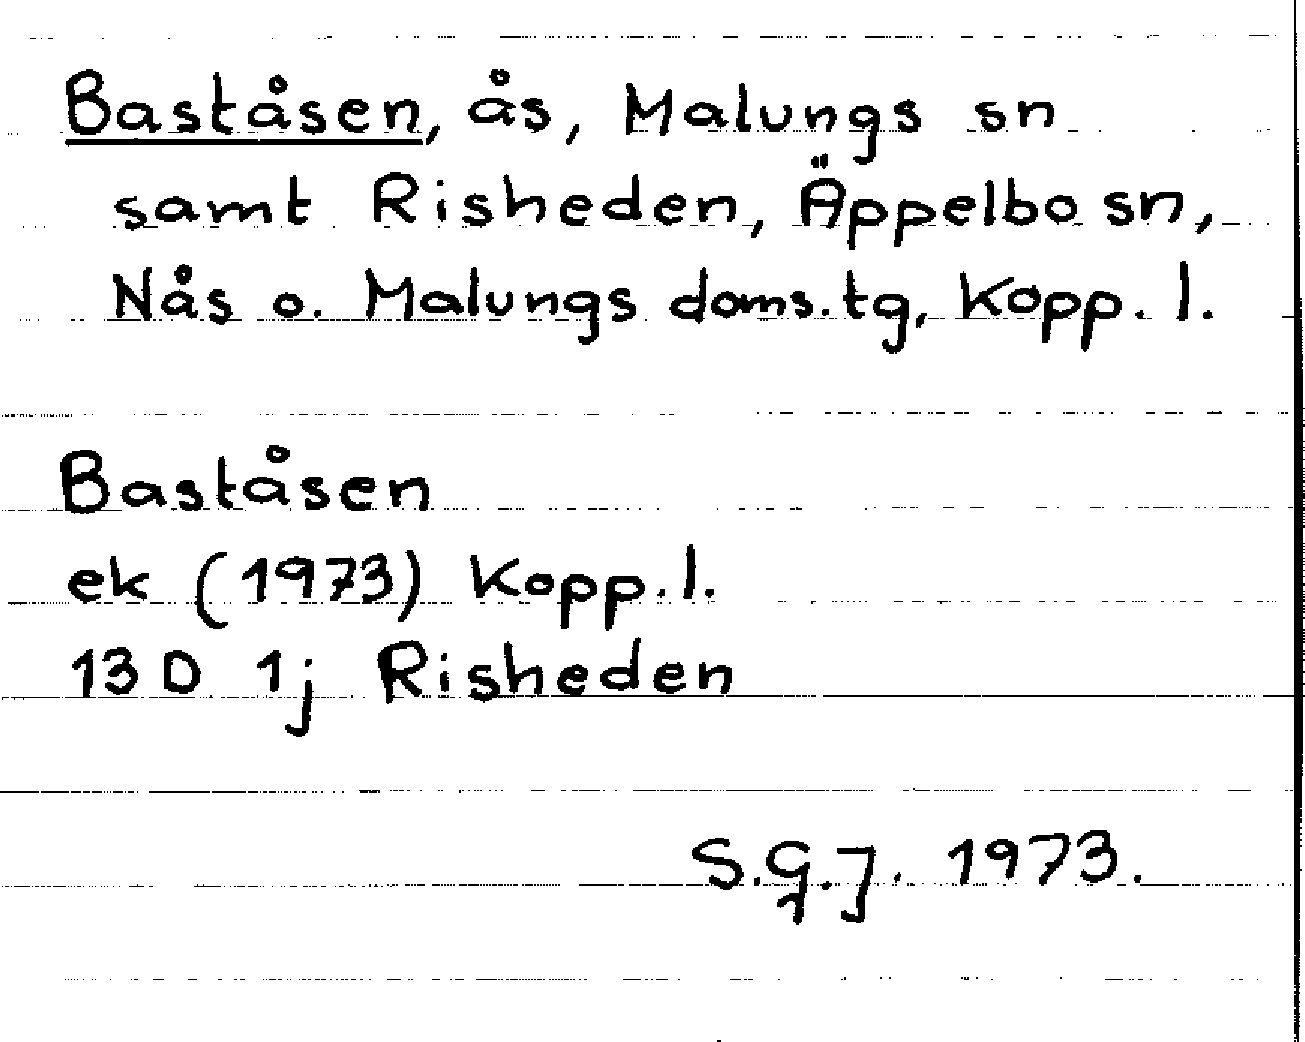 Baståsen, ås, Malungs sn
samt Risheden, Äppelbo sn,
Nås o. Malungs doms.tg, Kopp. l.
Baståsen
ek (1973) Kopp. l.
13 D 1j Risheden
S.G.J. 1973.